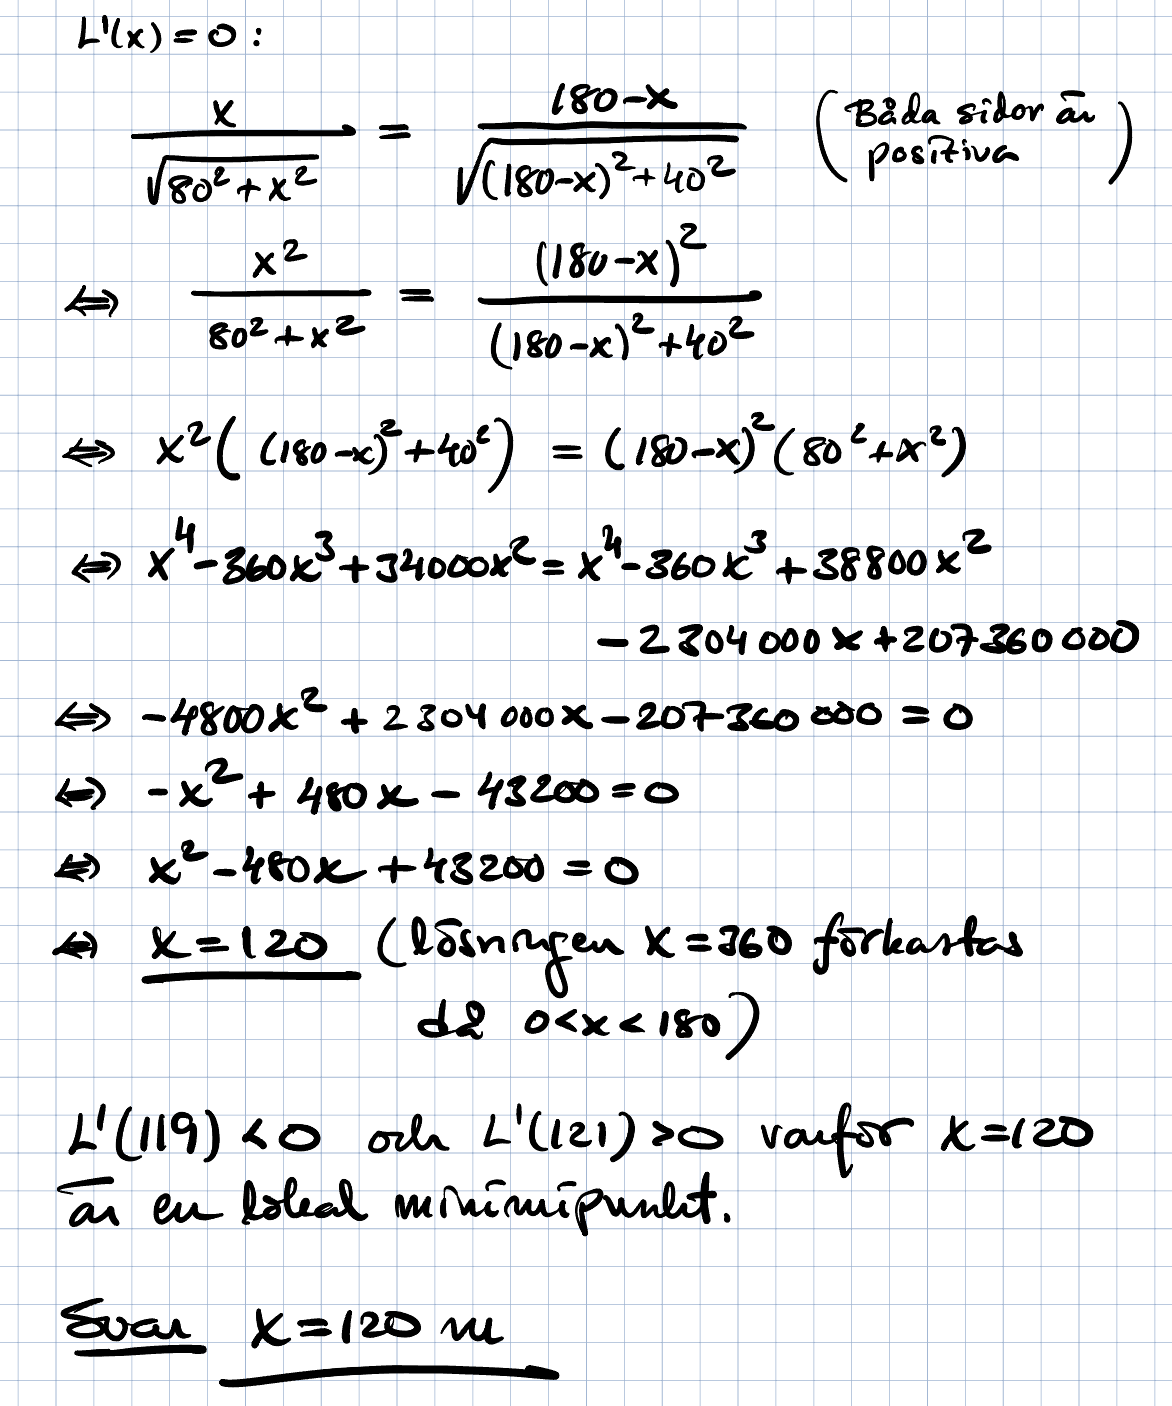 L'(x) = 0 :
x / √(80² + x²) = (180-x) / √((180-x)² + 40²) (Båda sidor är positiva)
⇔ x² / (80² + x²) = (180-x)² / ((180-x)² + 40²)
⇔ x² ( (180-x)² + 40² ) = (180-x)² (80² + x²)
⇔ x⁴ - 360x³ + 34000x² = x⁴ - 360x³ + 38800x²
- 2304000x + 207360000
⇔ -4800x² + 2304000x - 207360000 = 0
⇔ -x² + 480x - 43200 = 0
⇔ x² - 480x + 43200 = 0
⇔ x = 120 (lösningen x = 360 förkastas
då 0 < x < 180)
L'(119) < 0 och L'(121) > 0 varför x = 120
är en lokal minimipunkt.
Svar x = 120 m